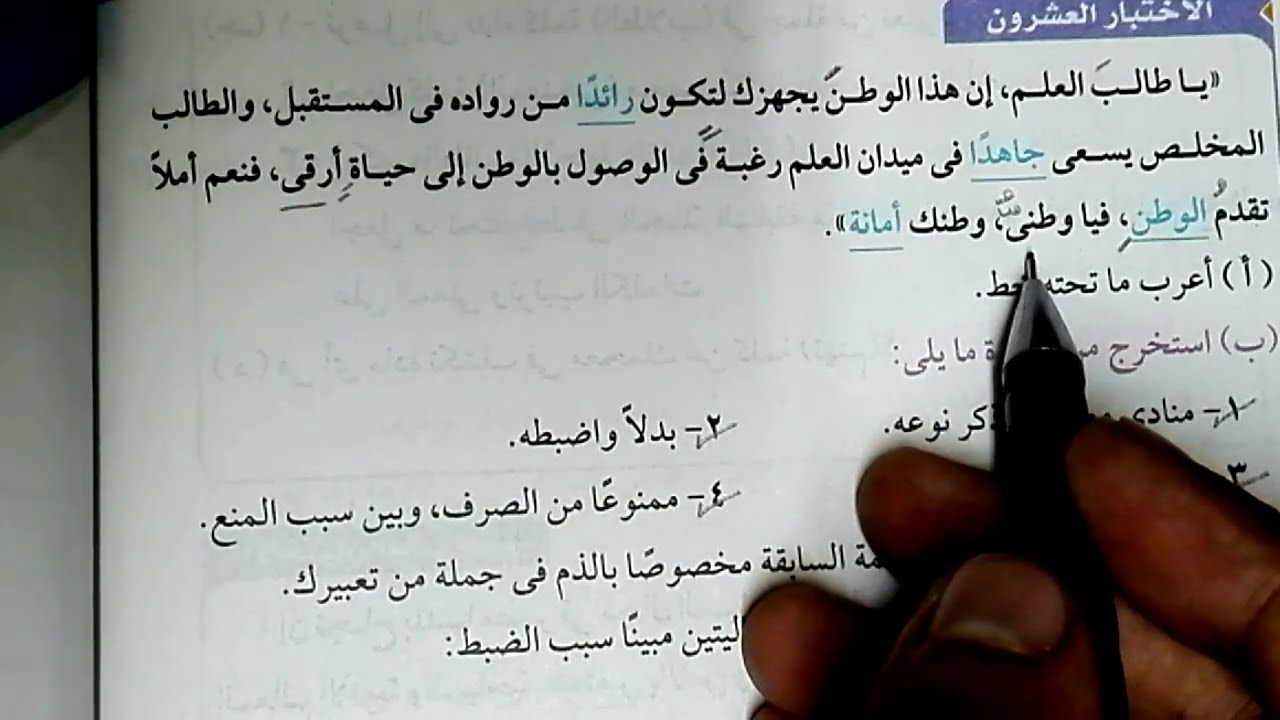 الاختبار العشرون
«يا طالبَ العلم، إن هذا الوطنَ يجهزك لتكون رائدًا من رواده فى المستقبل، والطالب
المخلص يسعى جاهدًا فى ميدان العلم رغبة فى الوصول بالوطن إلى حياةٍ أرقى، فنعم أملاً
تقدمُ الوطنِ، فيا وطنى، وطنك أمانة».
(أ) أعرب ما تحته خط.
(ب) استخرج ما يلى:
١- منادى نوعه. ٢- بدلاً واضبطه.
٣- ٤- ممنوعًا من الصرف، وبين سبب المنع.
السابقة مخصوصًا بالذم فى جملة من تعبيرك.
مبينًا سبب الضبط: